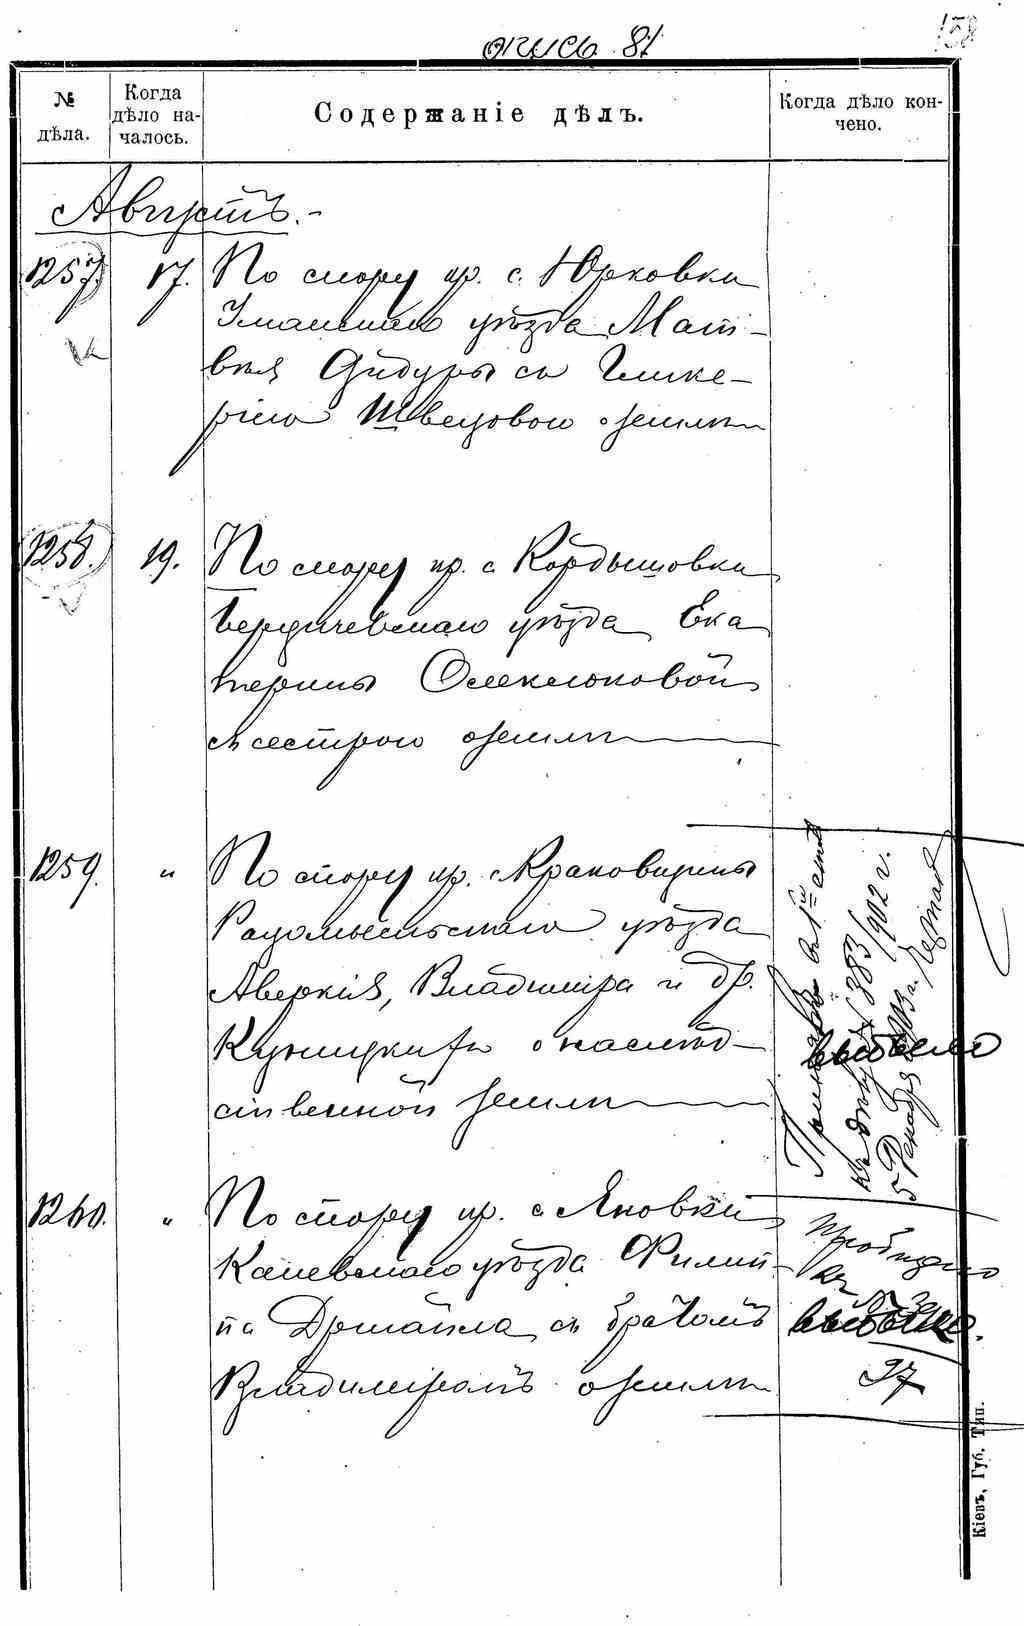 опись 81
158
№ дѣла.
Когда дѣло на-
чалось.
Содержаніе дѣлъ.
Когда дѣло кон-
чено.
Августъ.-
1257. 17. По спору кр. с. Юрковки
Уманскаго уѣзда Мат-
вѣя Дидуры съ Глике-
ріею Швецовою о землѣ
1258. 19. По спору кр. с. Кордышовки
Бердичевскаго уѣзда Ека
терины Олексюковой
съ сестрою о землѣ
1259. " По спору кр. с. Краковщины
Радомысльскаго уѣзда
Аверкія, Владиміра и др.
Куницкихъ о наслѣд-
ственной землѣ
выбыло
къ дѣлу № 383/902 г.
5 Декабря 903 г.
1260. " По спору кр. с. Яновки
Каневскаго уѣзда Филип-
па с братомъ
Владиміромъ о землѣ
выбыло.
27
Кіевъ, Губ. Тип.